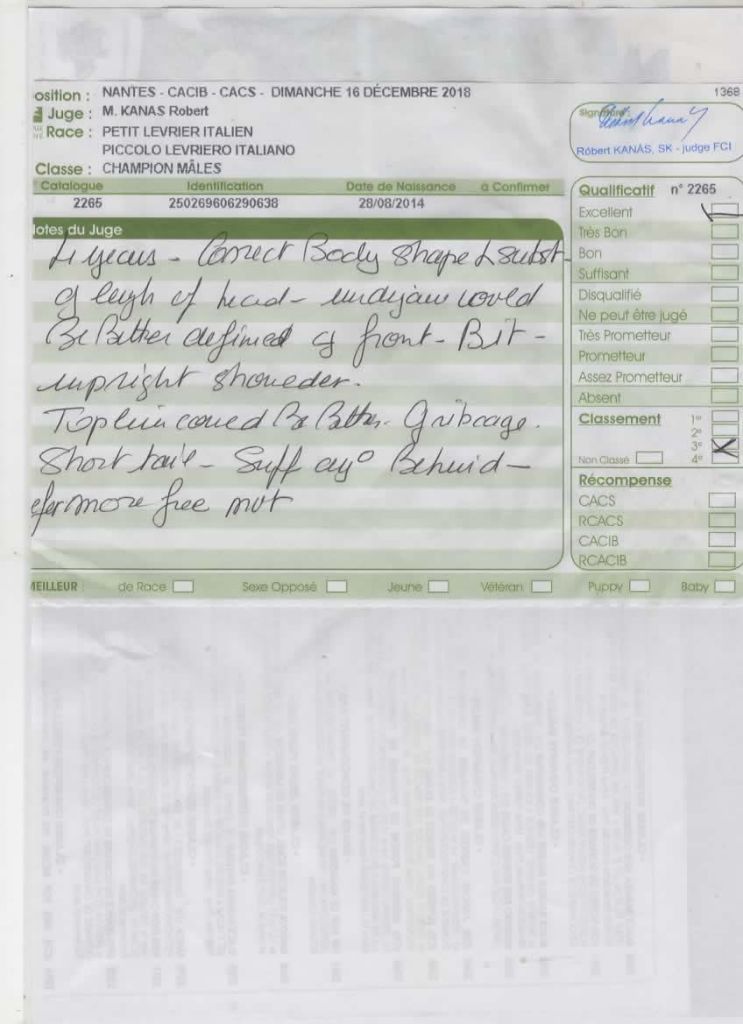 osition : NANTES - CACIB - CACS - DIMANCHE 16 DÉCEMBRE 2018
1368
Juge : M. KANAS Robert
Race : PETIT LEVRIER ITALIEN
PICCOLO LEVRIERO ITALIANO
Classe : CHAMPION MÂLES
Signature
Róbert KANÁS, SK - judge FCI
Catalogue Identification Date de Naissance à Confirmer
2265 250269606290638 28/08/2014
Notes du Juge
4 years - Correct Body shape & subst
of of head - underjaw could
Be Better defined front - Bit -
upright shoulder.
Topline could Be Better.
Short tail - Suff ang° Behind -
more free
Qualificatif n° 2265
Excellent
Très Bon
Bon
Suffisant
Disqualifié
Ne peut être jugé
Très Prometteur
Prometteur
Assez Prometteur
Absent
Classement 1°
2°
3°
Non Classé 4°
Récompense
CACS
RCACS
CACIB
RCACIB
MEILLEUR : de Race Sexe Opposé Jeune Vétéran Puppy Baby